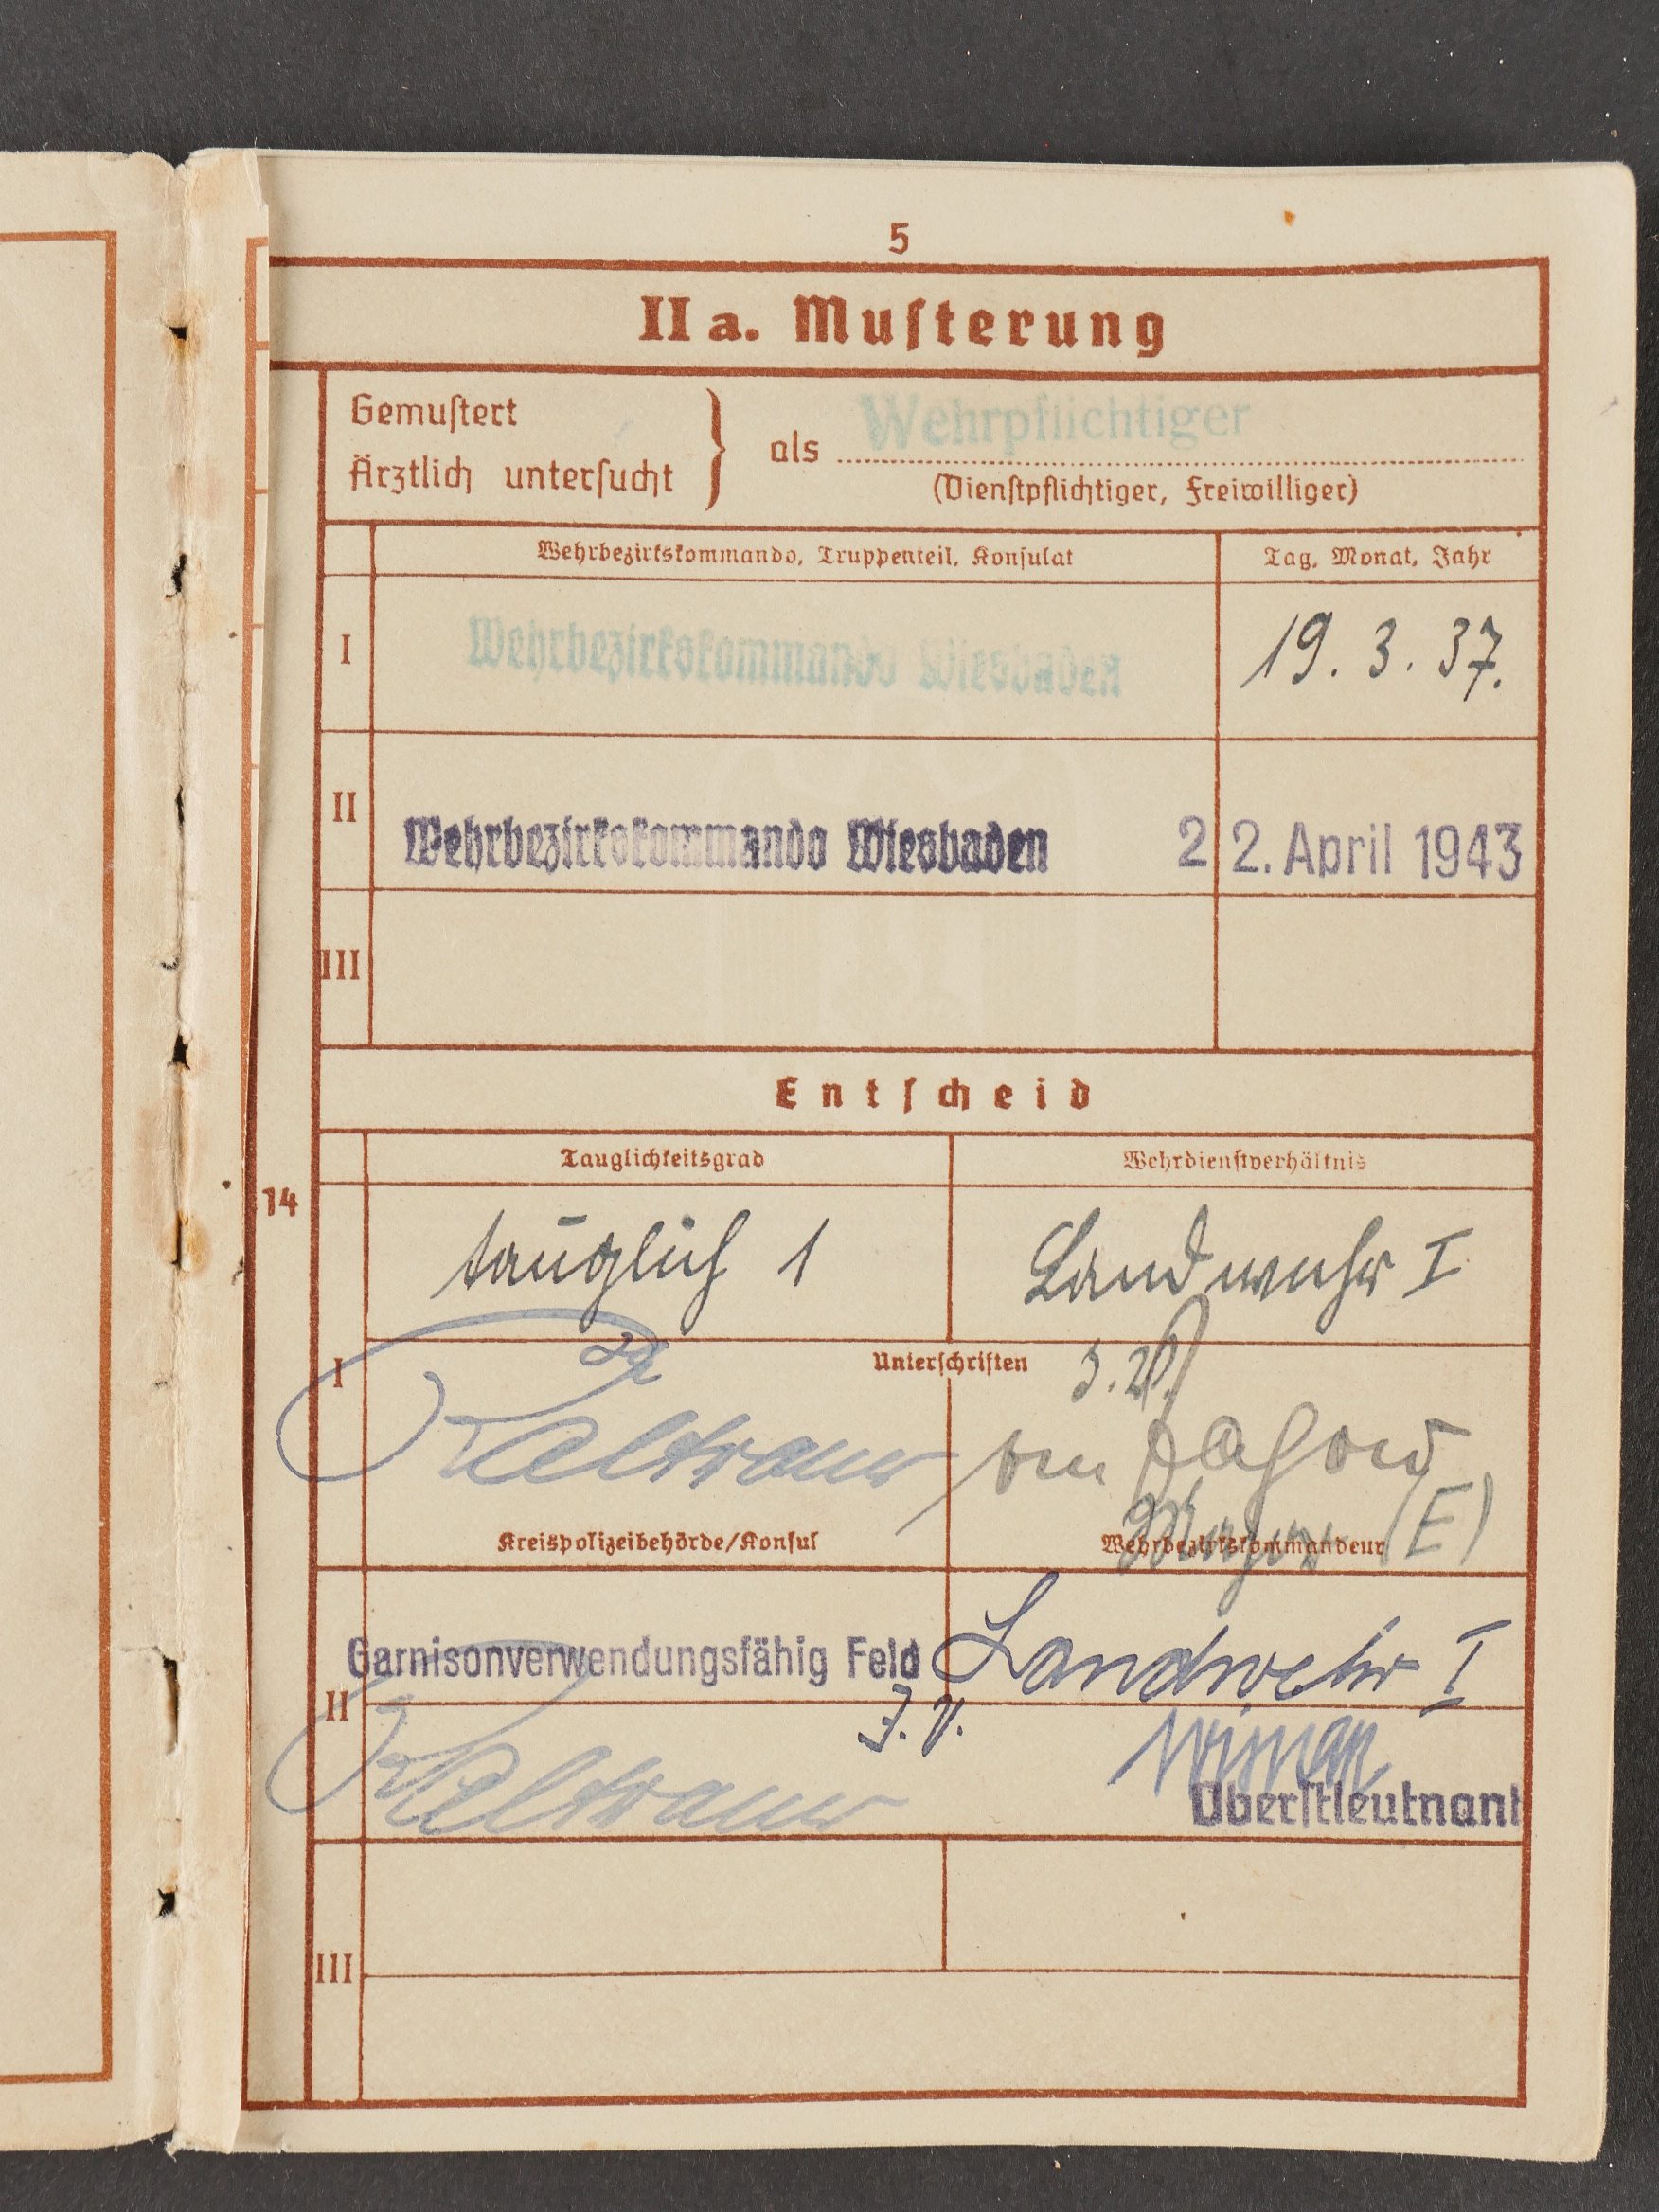 5
II a. Muſterung
Gemuſtert
Ärztlich unterſucht
als Wehrpflichtiger
(Dienſtpflichtiger, Freiwilliger)
Wehrbezirkskommando, Truppenteil, Konſulat
Tag, Monat, Jahr
I
Wehrbezirkskommando Wiesbaden
19. 3. 37.
II
Wehrbezirkskommando Wiesbaden
22. April 1943
III
Entſcheid
Tauglichkeitsgrad
Wehrdienſtverhältnis
14
tauglich 1
Landwehr I
I
Unterſchriften
von Jagow
Major (E)
Kreispolizeibehörde/Konſul
Wehrbezirkskommandeur
Garniſonverwendungsfähig Feld
Landwehr I
II
J. V.
Oberſtleutnant
III